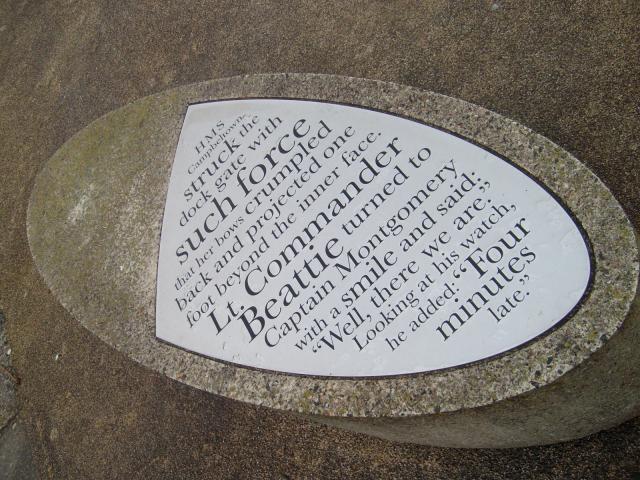 HMS
Campbeltown
struck the
dock gate with
such force
that her bows crumpled
back and projected one
foot beyond the inner face.
Lt. Commander
Beattie turned to
Captain Montgomery
with a smile and said:
“Well, there we are.”
Looking at his watch,
he added: “Four
minutes
late.”